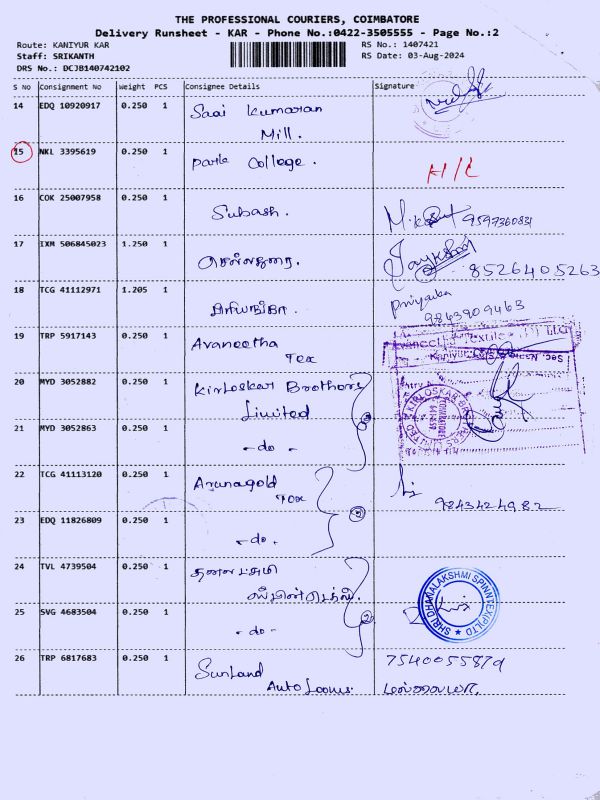 THE PROFESSIONAL COURIERS, COIMBATORE
Delivery Runsheet - KAR - Phone No.:0422-3505555 - Page No.:2
Route: KANIYUR KAR
RS No.: 1407421
Staff: SRIKANTH
RS Date: 03-Aug-2024
DRS No.: DCJB140742102
S No Consignment No Weight PCS Consignee Details Signature
14 EDQ 10920917 0.250 1 Saai Kumaran
Mill.
15 NKL 3395619 0.250 1 Park College.
16 COK 25007958 0.250 1 Subash. 9597360831
17 IXM 506845023 1.250 1 செல்லதுரை. 8526405263
18 TCG 41112971 1.205 1 பிரியங்கா. Priyanka
9843909463
19 TRP 5917143 0.250 1 Avaneetha
Tex
20 MYD 3052882 0.250 1 Kirloskar Brothers
Limited
21 MYD 3052863 0.250 1 - do -
22 TCG 41113120 0.250 1 Arunagold
Tex 9843424982
23 EDQ 11826809 0.250 1 - do -
24 TVL 4739504 0.250 1 தனலட்சுமி
25 SVG 4683504 0.250 1 - do - 2
26 TRP 6817683 0.250 1 Sunland
Auto Looms.